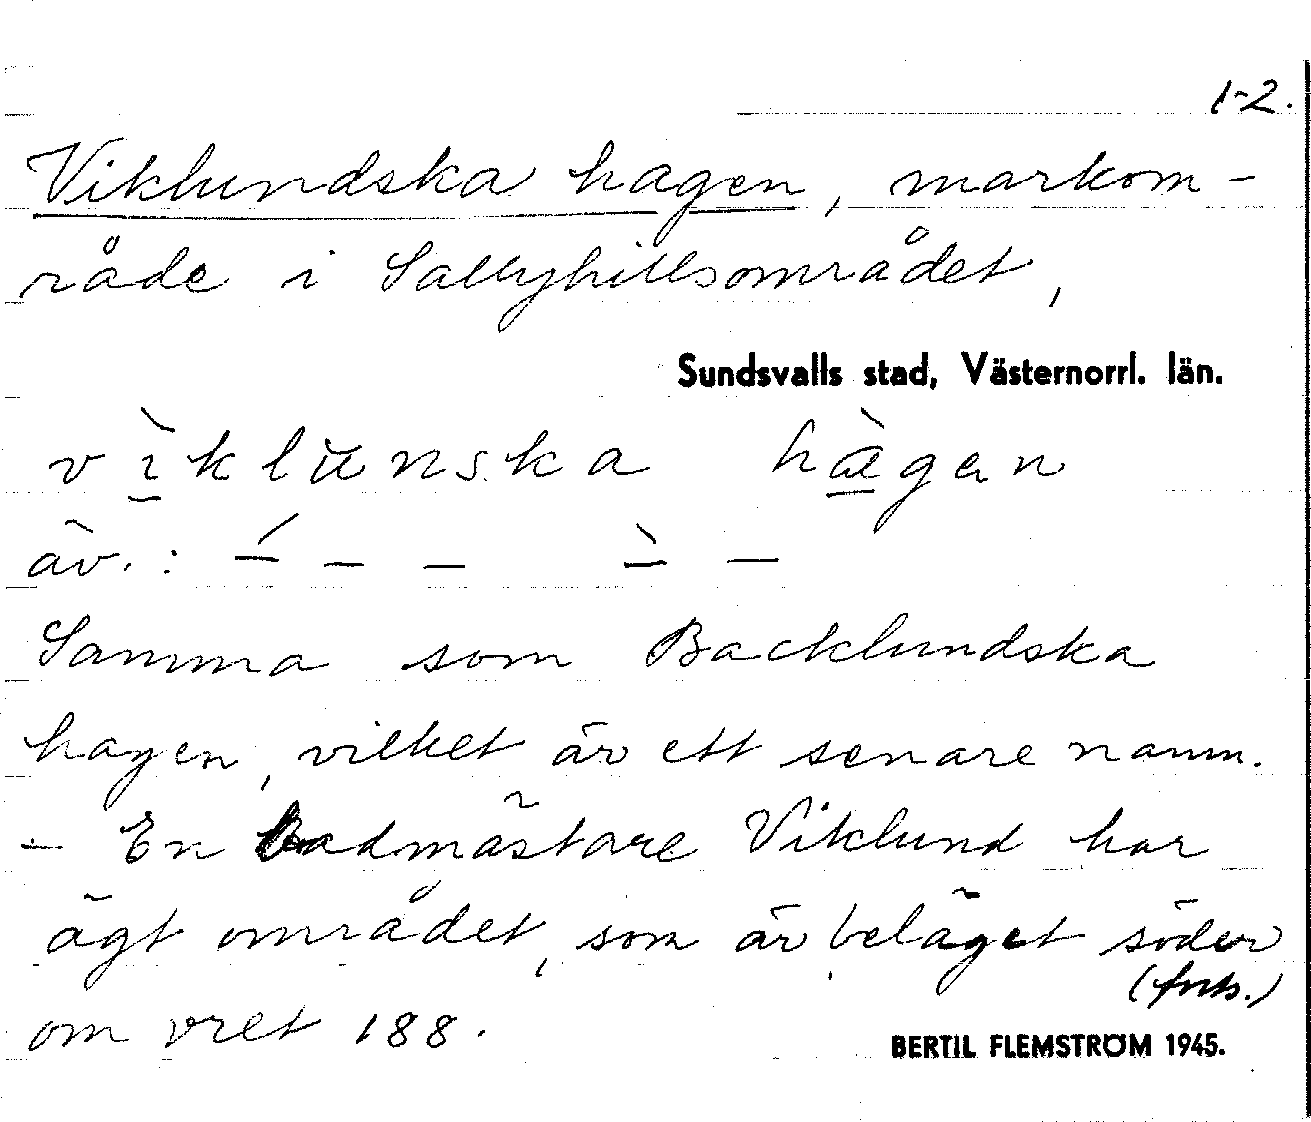 1-2.
Viklundska hagen, markom-
råde i Sallyhillsområdet,
Sundsvalls stad, Västernorrl. län.
vìklunska hàgen
äv.:
Samma som Backlundska
hagen, vilket är ett senare namn.
- En badmästare Viklund har
ägt området, som är beläget söder
(forts.)
om vret 188.
BERTIL FLEMSTRÖM 1945.